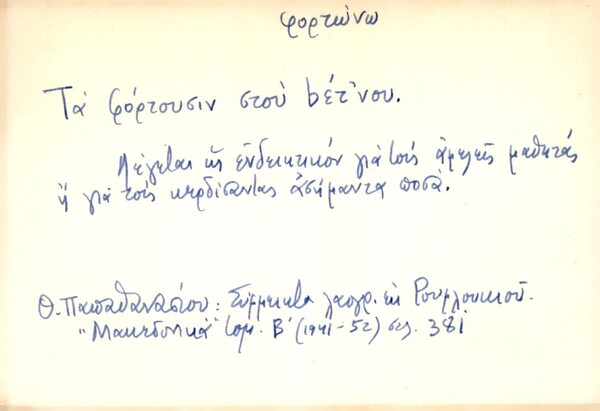 φορτώνω
Τὰ φόρτουσιν στοὺ bέτ'νου.
Λέγεται ὡς ἐνδεικτικόν γιὰ τοὺς ἀμελεῖς μαθητάς
ἢ γιὰ τοὺς κερδίσαντας ἀσήμαντα ποσά.
Θ. Παπαθανασίου: Σύμμεικτα λαογρ. ἐκ Ρουμλουκιοῦ.
"Μακεδονικά" τομ. Β' (1941-52) σελ. 381